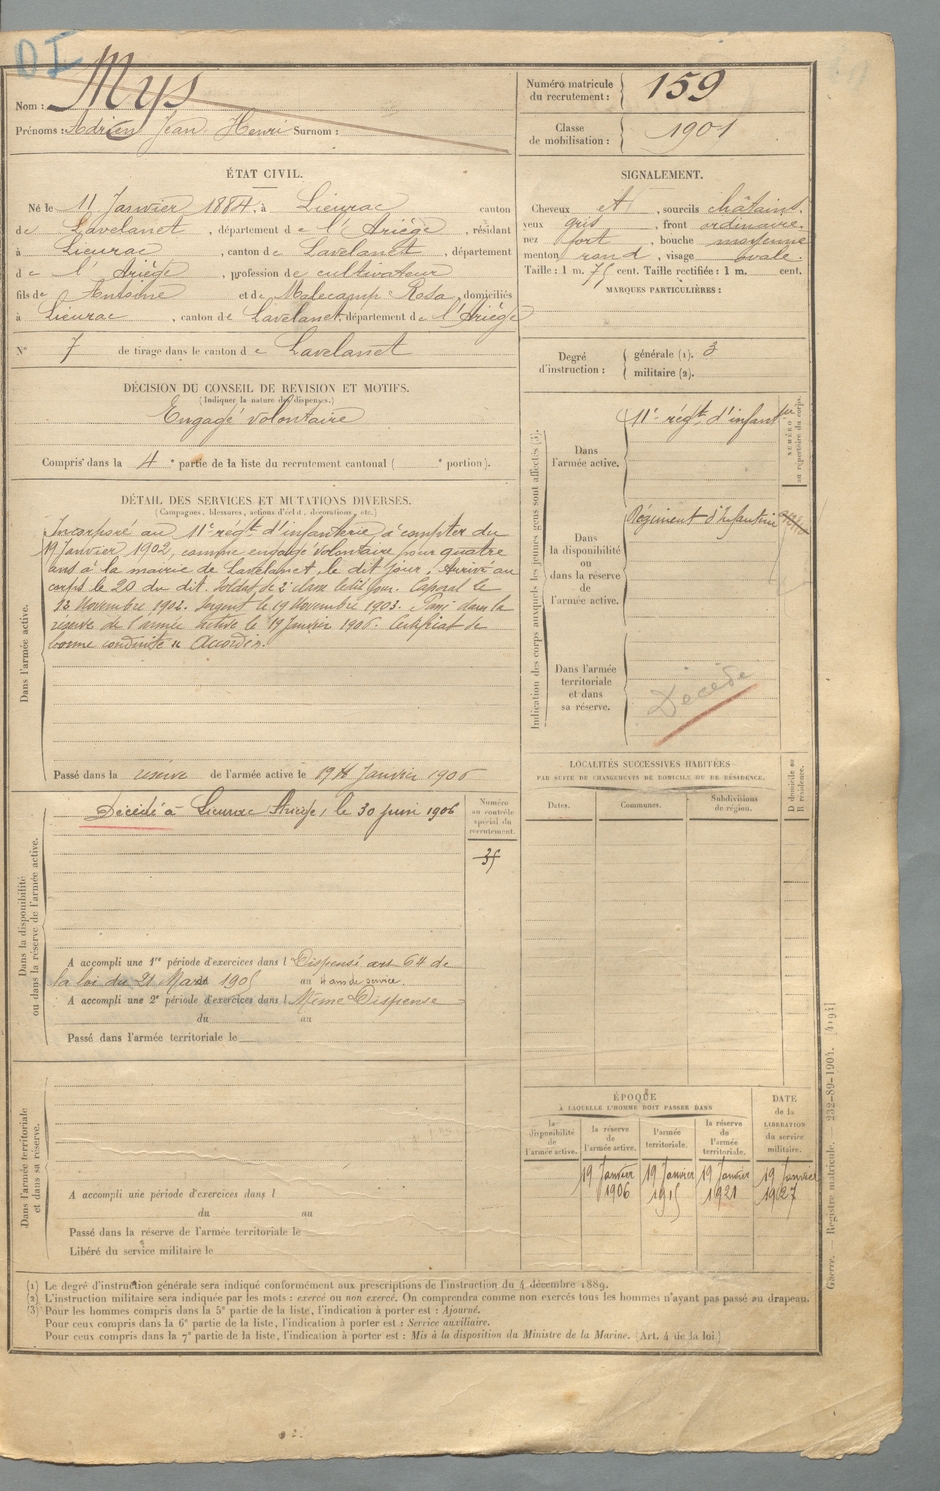 DI
Nom : Mys
Prénoms : Adrien Jean Henri Surnom :
Numéro matricule
du recrutement : 159
Classe
de mobilisation : 1901
ÉTAT CIVIL.
Né le 11 Janvier 1884, à Lieurac canton
de Lavelanet, département de l'Ariège, résidant
à Lieurac, canton de Lavelanet, département
de l'Ariège, profession de cultivateur
fils de Antoine et de Malecamp Rosa, domiciliés
à Lieurac, canton de Lavelanet, département de l'Ariège
N° 7 de tirage dans le canton de Lavelanet
SIGNALEMENT.
Cheveux et, sourcils châtains.
yeux gris, front ordinaire.
nez fort, bouche moyenne
menton rond, visage ovale.
Taille : 1 m. 75 cent. Taille rectifiée : 1 m. cent.
MARQUES PARTICULIÈRES :
Degré
d'instruction :
générale (1). 3
militaire (2).
DÉCISION DU CONSEIL DE REVISION ET MOTIFS.
(Indiquer la nature des dispenses.)
Engagé volontaire
Compris dans la 4e partie de la liste du recrutement cantonal ( e portion).
DÉTAIL DES SERVICES ET MUTATIONS DIVERSES.
(Campagnes, blessures, actions d'éclat, décorations, etc.)
Dans l'armée active.
Incorporé au 11e régt d'infanterie à compter du
19 Janvier 1902, comme engagé volontaire pour quatre
ans à la mairie de Lavelanet, le dit jour. Arrivé au
corps le 20 du dit. Soldat de 2e classe ledit jour. Caporal le
Novembre 1902. Sergent le 19 Novembre 1903. Passé dans la
réserve de l'armée active le 19 Janvier 1906. Certificat de
bonne conduite "Accordé".
Passé dans la réserve de l'armée active le 19 Janvier 1906
Indication des corps auxquels les jeunes gens sont affectés (3).
NUMÉRO
au répertoire du corps.
Dans
l'armée active.
11e régt d'infanterie
Dans
la disponibilité
ou
dans la réserve
de
l'armée active.
Régiment d'Infanterie
Dans l'armée
territoriale
et dans
sa réserve.
Décédé
Dans la disponibilité
ou dans la réserve de l'armée active.
Décédé à Lieurac Ariège, le 30 juin 1906
Numéro
au contrôle
spécial du
recrutement.
35
A accompli une 1re période d'exercices dans l Dispensé art 64 de
la loi du 21 Mars 1905 au 4 ans de service.
A accompli une 2e période d'exercices dans l Même Dispense
du au
Passé dans l'armée territoriale le
LOCALITÉS SUCCESSIVES HABITÉES
PAR SUITE DE CHANGEMENTS DE DOMICILE OU DE RÉSIDENCE.
Dates.
Communes.
Subdivisions
de région.
D domicile ou
R résidence.
Dans l'armée territoriale
et dans sa réserve.
A accompli une période d'exercices dans l
du au
Passé dans la réserve de l'armée territoriale le
Libéré du service militaire le
ÉPOQUE
À LAQUELLE L'HOMME DOIT PASSER DANS
la
disponibilité
de
l'armée active.
la réserve
de
l'armée active.
l'armée
territoriale.
la réserve
de
l'armée
territoriale.
DATE
de la
LIBÉRATION
du service
militaire.
19 Janvier 1906
19 Janvier 1915
19 Janvier 1921
19 Janvier 1927
(1) Le degré d'instruction générale sera indiqué conformément aux prescriptions de l'instruction du 4 décembre 1889.
(2) L'instruction militaire sera indiquée par les mots : exercé ou non exercé. On comprendra comme non exercés tous les hommes n'ayant pas passé au drapeau.
(3) Pour les hommes compris dans la 5e partie de la liste, l'indication à porter est : Ajourné.
Pour ceux compris dans la 6e partie de la liste, l'indication à porter est : Service auxiliaire.
Pour ceux compris dans la 7e partie de la liste, l'indication à porter est : Mis à la disposition du Ministre de la Marine. (Art. 4 de la loi.)
Guerre. — Registre matricule. — 232-89-1904. [4191]